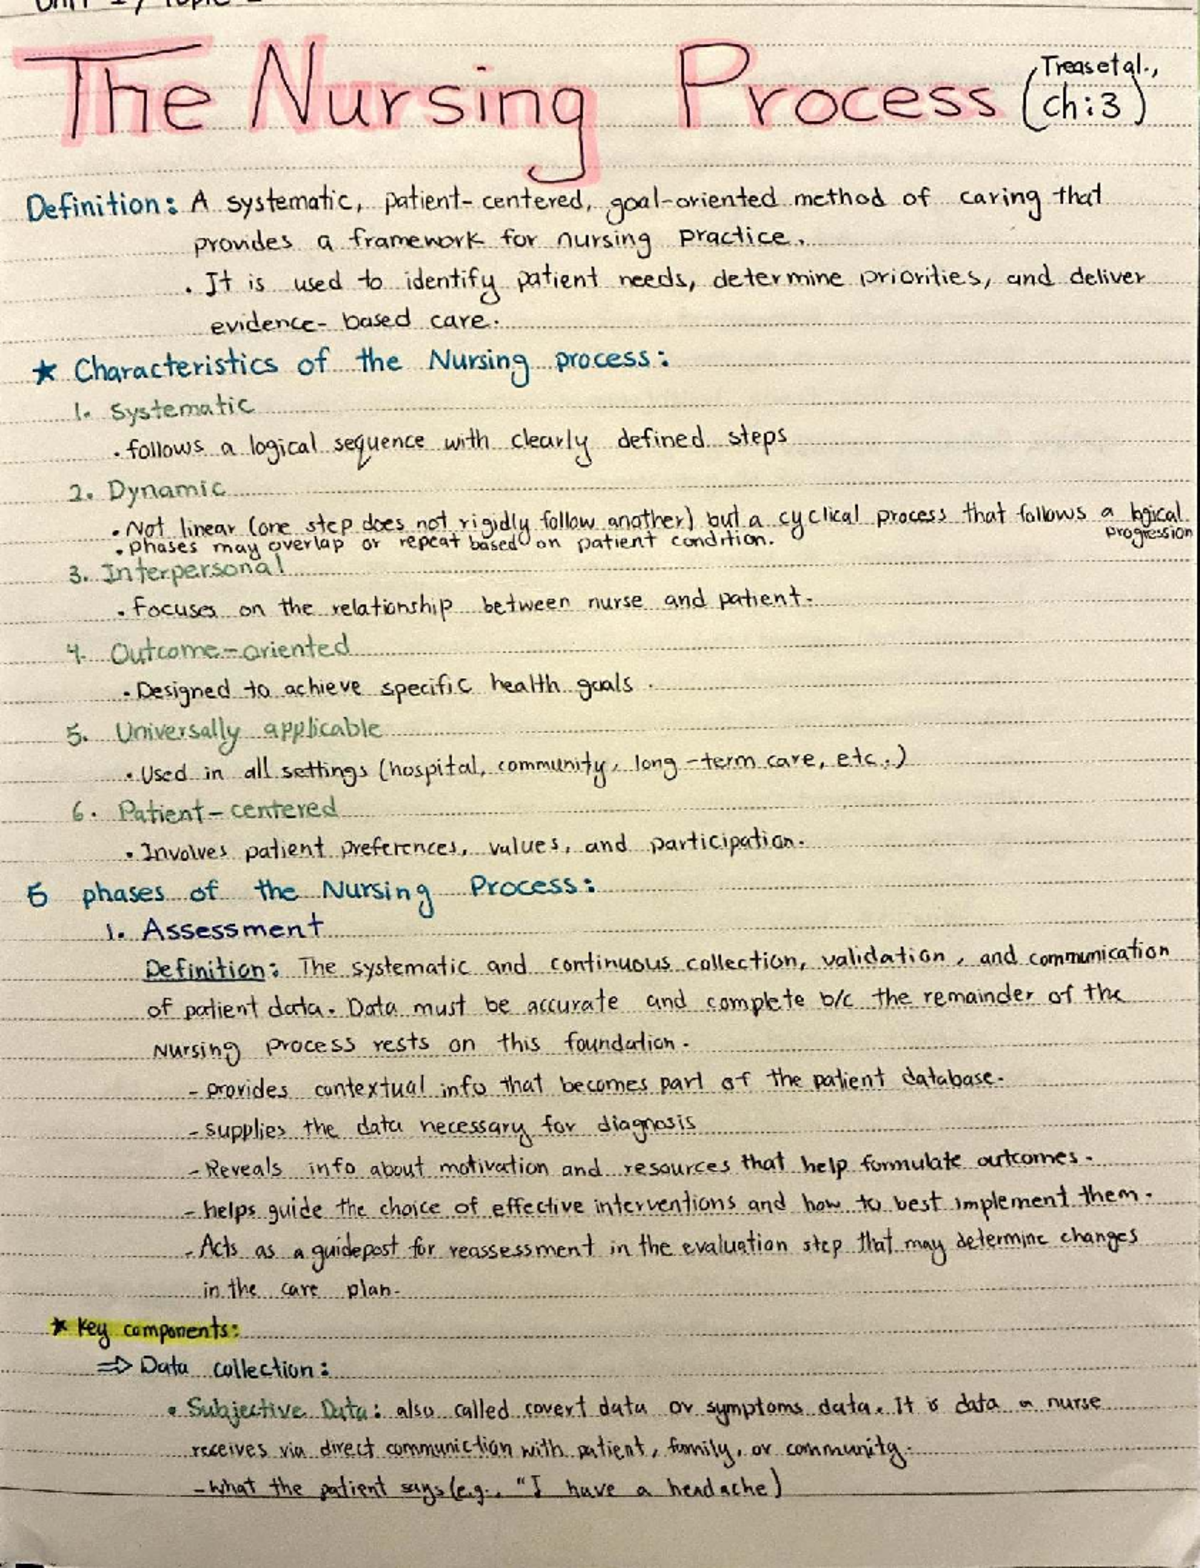 The Nursing Process (Treas et al.,
ch: 3)
Definition: A systematic, patient-centered, goal-oriented method of caring that
provides a framework for nursing practice.
. It is used to identify patient needs, determine priorities, and deliver
evidence-based care.
★ Characteristics of the Nursing process:
1. Systematic
• follows a logical sequence with clearly defined steps
2. Dynamic
• Not linear (one step does not rigidly follow another) but a cyclical process that follows a logical
progression
• Phases may overlap or repeat based on patient condition.
3. Interpersonal
• Focuses on the relationship between nurse and patient.
4. Outcome-oriented
• Designed to achieve specific health goals.
5. Universally applicable
• Used in all settings (hospital, community, long-term care, etc.)
6. Patient-centered
• Involves patient preferences, values, and participation.
5 phases of the Nursing Process:
1. Assessment
Definition: The systematic and continuous collection, validation, and communication
of patient data. Data must be accurate and complete b/c the remainder of the
Nursing process rests on this foundation.
- provides contextual info that becomes part of the patient database.
- supplies the data necessary for diagnosis
- Reveals info about motivation and resources that help formulate outcomes.
- helps guide the choice of effective interventions and how to best implement them.
- Acts as a guidepost for reassessment in the evaluation step that may determine changes
in the care plan.
* Key components:
⇒ Data collection:
• Subjective Data: also called covert data or symptoms data. It is data a nurse
receives via direct communiction with patient, family, or community.
- What the patient says (e.g., "I have a headache)